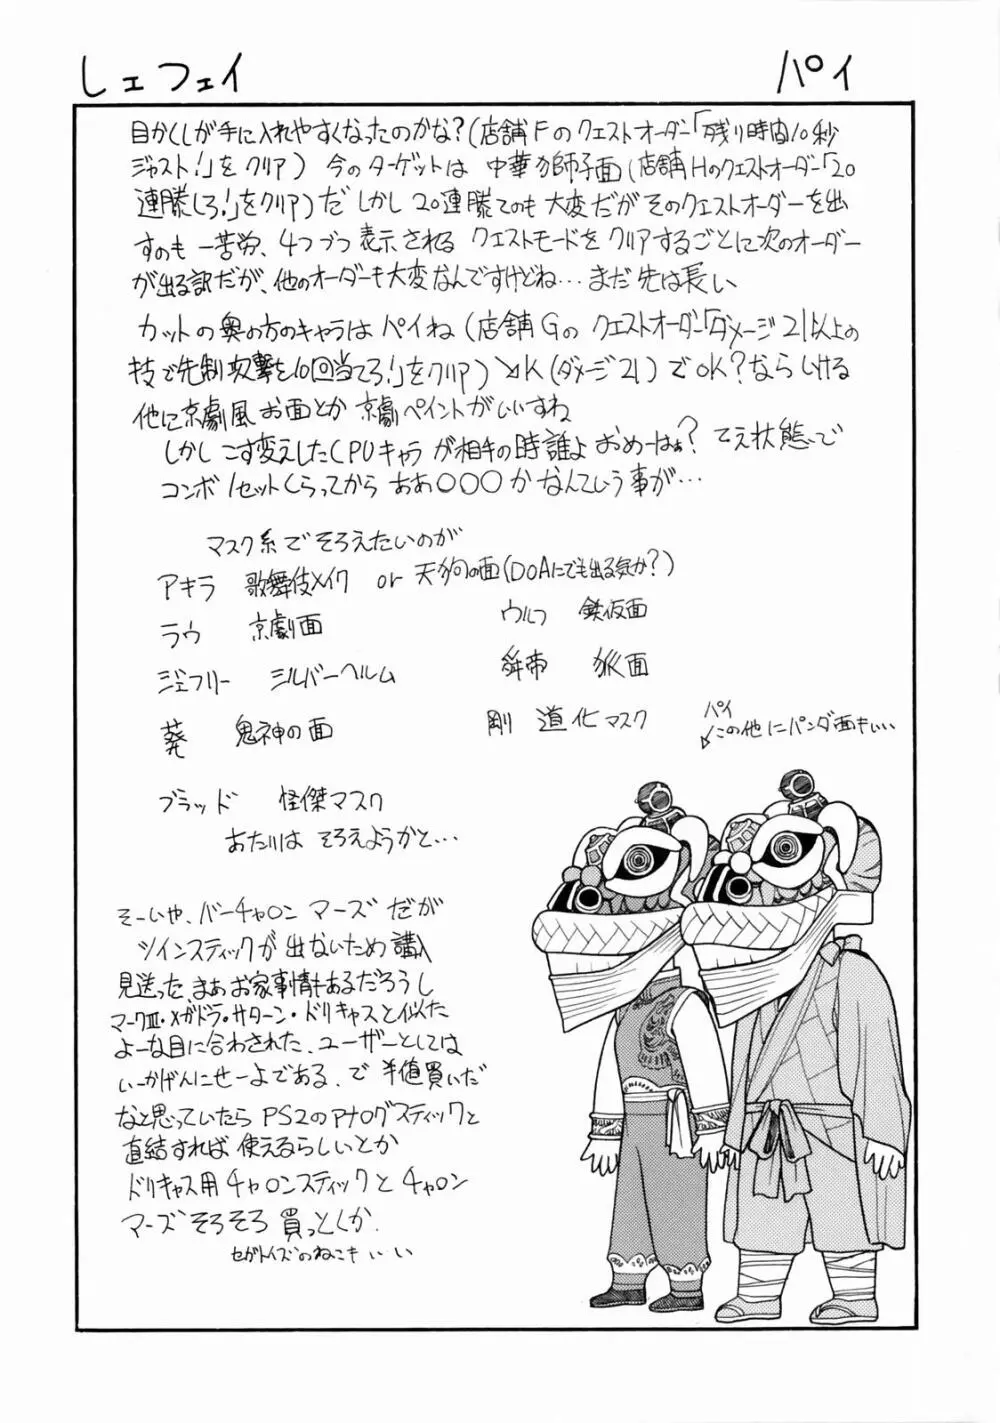 しェフェイ
パイ
目かくしが手に入れやすくなったのかな?(店舗Fのクエストオーダー「残り時間10秒
ジャスト!」をクリア) 今のターゲットは 中華獅子面(店舗Hのクエストオーダー「20
連勝しろ!」をクリア)だ しかし 20連勝てのも 大変だが そのクエストオーダーを出
すのも 一苦労、4つづつ 表示される クエストモードを クリアするごとに次のオーダー
が出る訳だが、他のオーダーも大変なんですけどね…まだ先は長い
カットの奥の方のキャラは パイね (店舗Gの クエストオーダー「ダメージ21以上の
技で先制攻撃を10回当てろ!」をクリア)↘K(ダメージ21)でOK?ならいける
他に京劇風お面とか 京劇ペイントがいいすね
しかし こす変えしたCPUキャラ が相手の時誰よ おめーはぁ?てえ状態で
コンボ1セットくらってから ああ〇〇〇か なんていう事が…
マスク系で そろえたいのが
アキラ 歌舞伎メイク or 天狗の面(DOAにでも出る気か?)
ラウ 京劇面
ウルフ 鉄仮面
ジェフリー シルバーヘルム
舜帝 狐面
葵 鬼神の面
剛 道化マスク
パイ
↙この他にパンダ面もいい…
ブラッド 怪傑マスク
あたりは そろえようかと…
そーいや、バーチャロン マーズ だが
ツインスティックが 出ないため 購入
見送った、まぁお家事情もあるだろうし
マークⅢ・メガドラ・サターン・ドリキャスと似た
よーな目に合わされた、ユーザーとしては
いーかげんにせーよである、で 半値買いだ
なと思っていたら PS2のアナログスティックと
直結すれば 使えるらしいとか
ドリキャス用 チャロンスティックと チャロン
マーズ そろそろ 買っとくか.
セガトイズのねこもいい